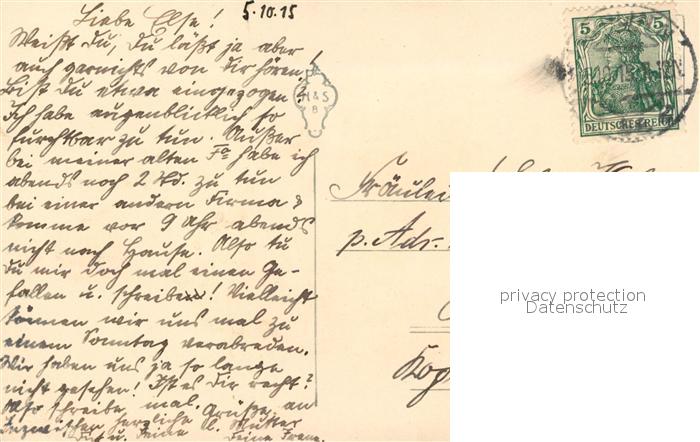 5.10.15
Liebe Else!
Weißt Du, Du läßt ja aber
auch garnichts von Dir hören!
Bist Du etwa eingezogen?
Ich habe augenblicklich so
furchtbar zu tun. Außer
bei meiner alten Fa habe ich
abends noch 2 Std. zu tun
bei einer andern Firma &
komme vor 9 Uhr abends
nicht nach Hause. Also tu
Du mir doch mal einen Ge-
fallen u. schreibe! Vielleicht
können wir uns mal zu
einem Sonntag verabreden.
Wir haben uns ja so lange
nicht gesehen! Ist es dir recht?
Also schreibe mal. Grüße an
Inzwischen herzliche u. Mutter
Dich u. Deine Deine
H & S
B
5 5
DEUTSCHES REICH
Fräulei
p. Adr.
privacy protection
Datenschutz